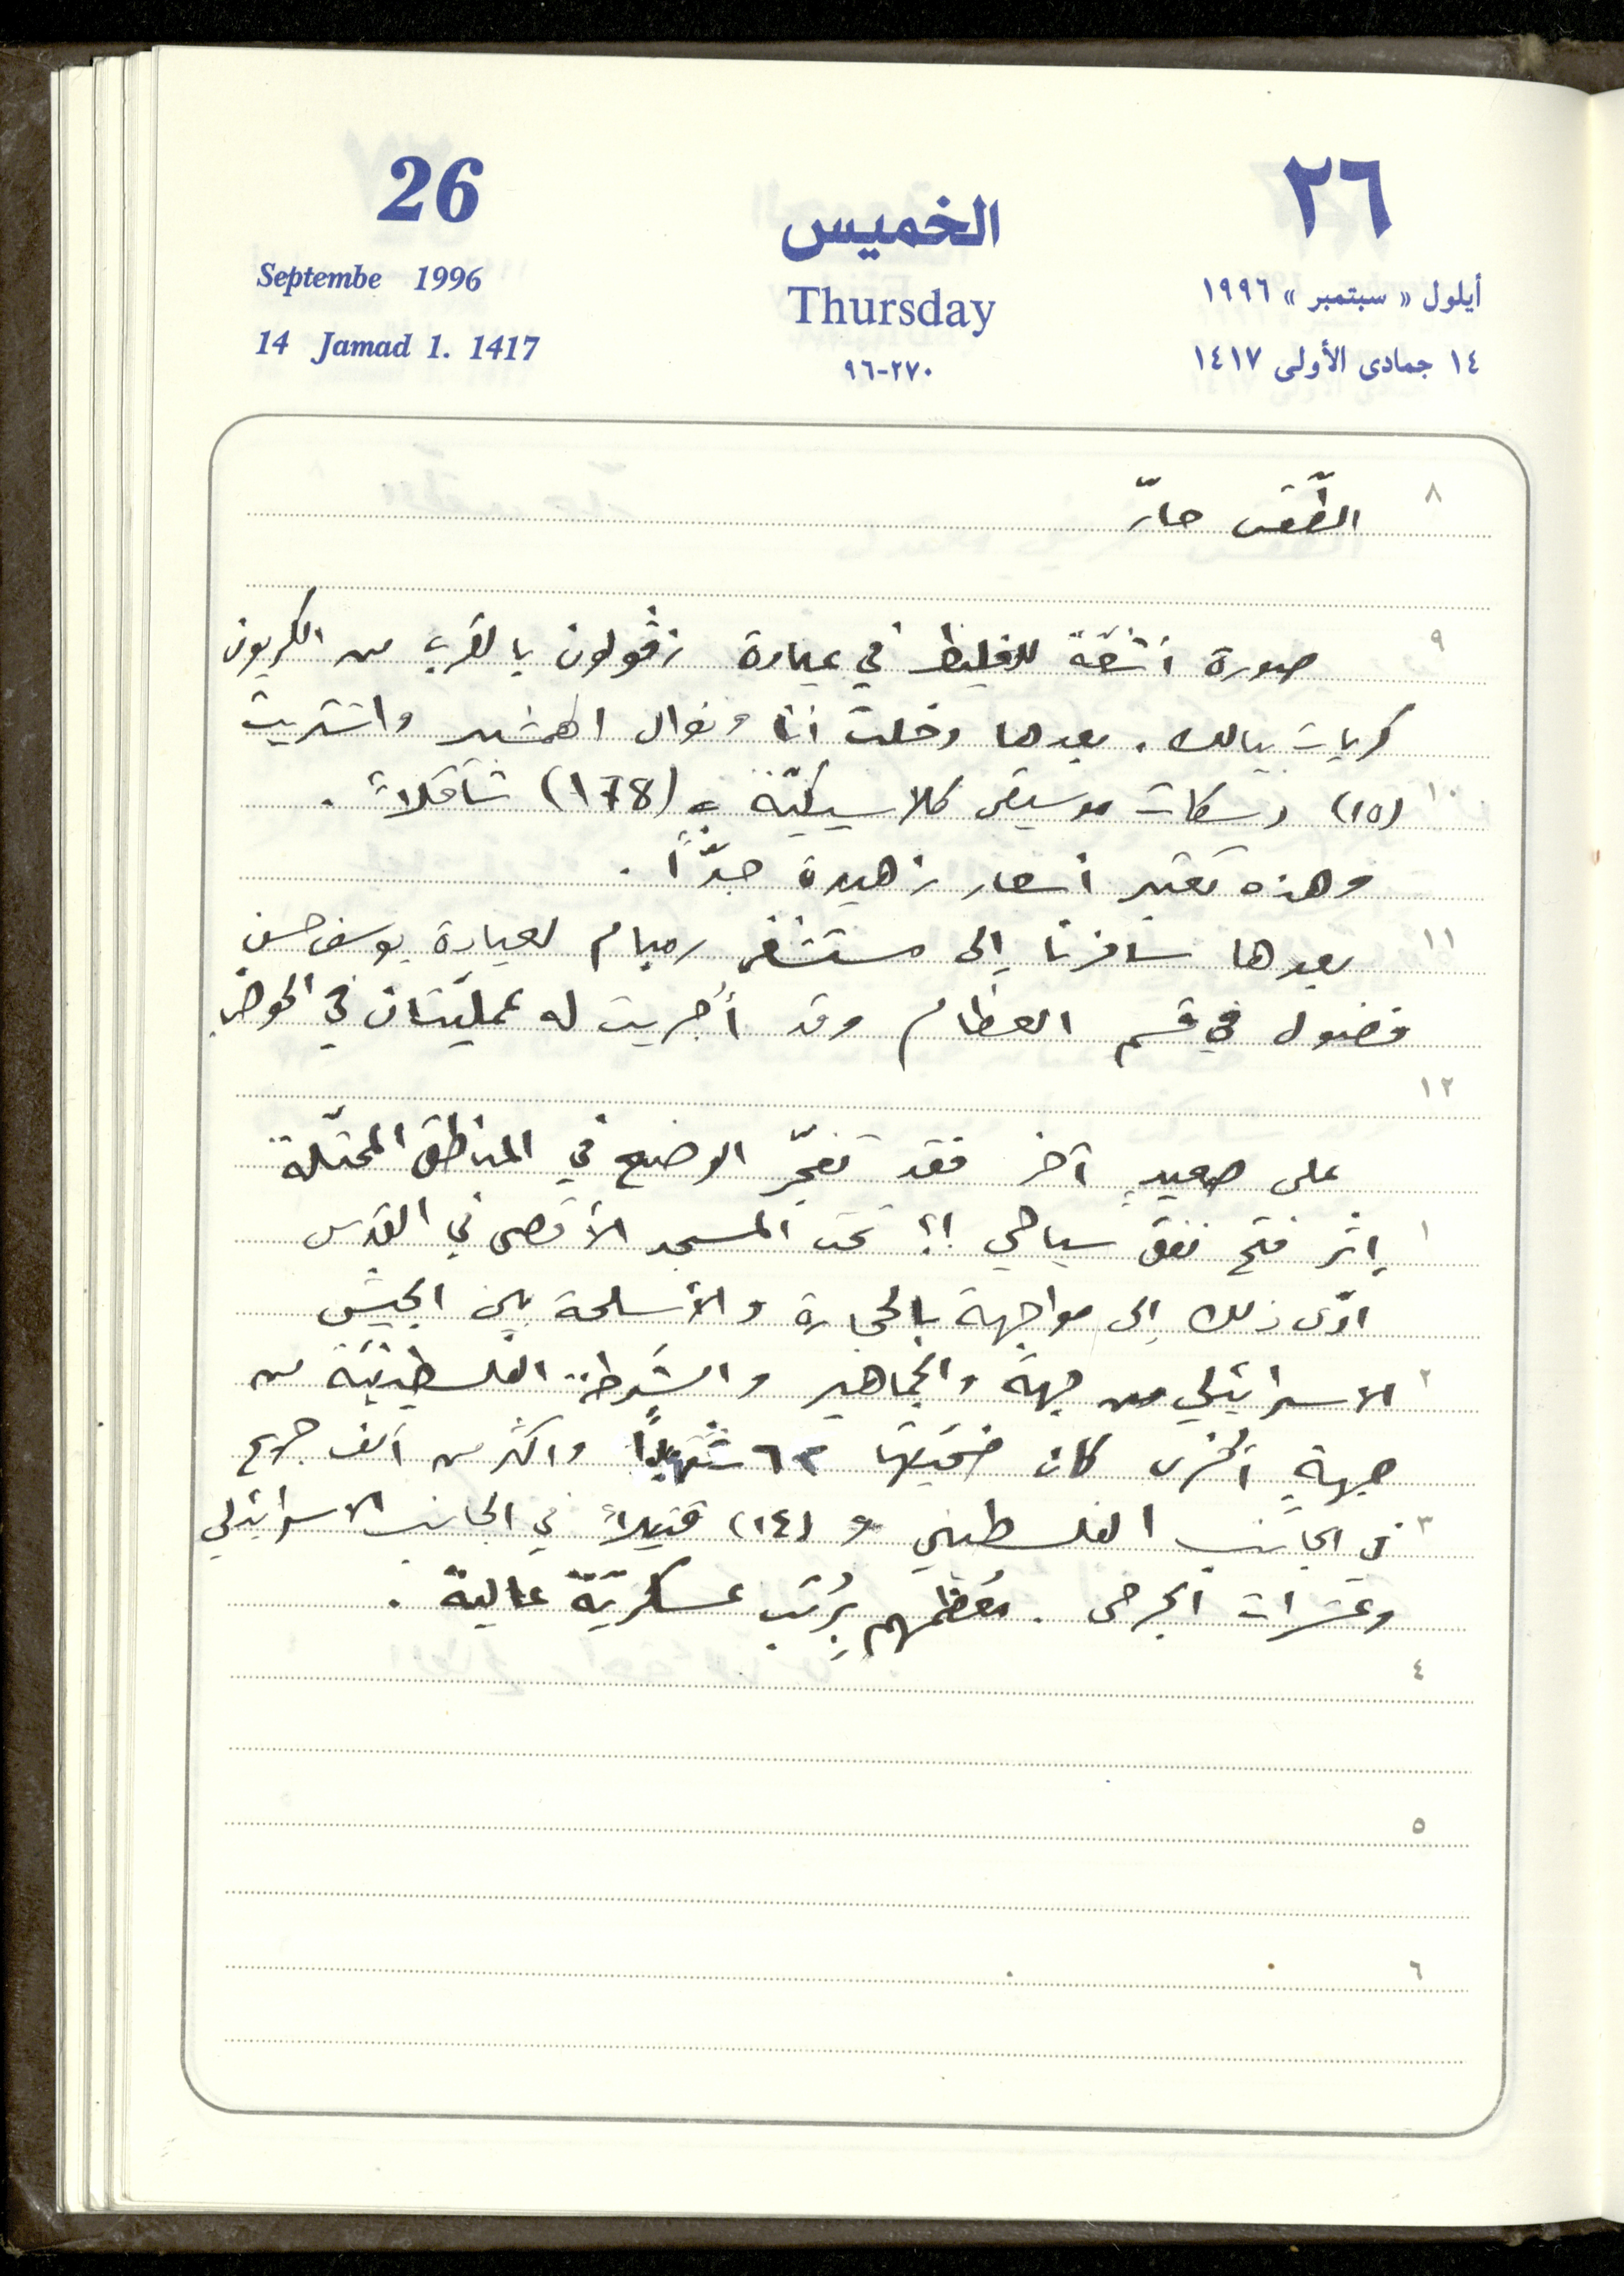 26
Septembe 1996
14 Jamad 1. 1417
الخميس
Thursday
٢٧٠-٩٦
٢٦
أيلول « سبتمبر » ١٩٩٦
١٤ جمادى الأولى ١٤١٧
٨
الطّقس حارّ
٩
صورة أشعّة للغليظ في عيادة زڤولون بالقرب من الكريون
كريات بيالك. بعدها دخلت أنا ونوال المشبير واشتريت
١٠
(١٥) دسكات موسيقى كلاسيكيّة بـ (178) شاقلاً.
وهذه تعتبر أسعار زهيدة جدّاً.
١١
بعدها سافرنا إلى مستشفى رمبام لعيادة يوسف حسن
فضول في قسم العظام وقد أُجريت له عمليّتان في الحوض
١٢
على صعيدٍ آخر فقد تفجّر الوضع في المناطق المحتلّة
١
إثر فتح نفق سياحي !؟ تحت المسجد الأقصى في القدس
ادّى ذلك إلى مواجهة بالحجارة والأسلحة بين الجيش
٢
الاسرائيلي من جهة والجماهير والشرطة الفلسطينيّة من
جهةٍ أخرى كان ضحيّتها ٦٢ شهيداً واكثر من ألف جريح
٣
في الجانب الفلسطيني و (١٤) قتيلاً في الجانب الاسرائيلي
وعشرات الجرحى. مُعظمهم بِرُتَب عسكريّة عالية.
٤
٥
٦